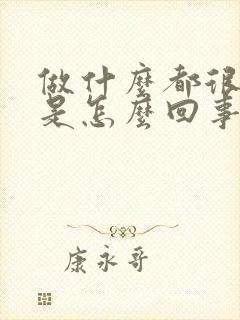 做什麼都很
是怎麼回事
康永哥